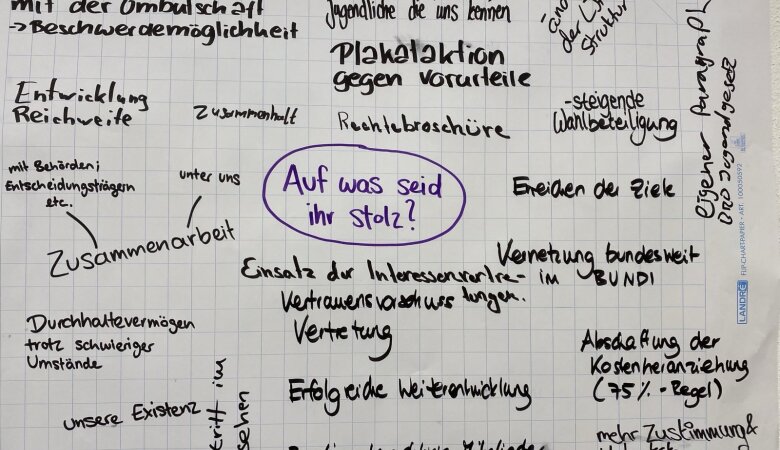 mit der Ombudschaft
→ Beschwerdemöglichkeit
Jugendliche die uns kennen
der
Struktur
Plakataktion
gegen Vorurteile
eigener Paragraph
Entwicklung
Reichweite
Zusammenhalt
Rechtebroschüre
-steigende
Wahlbeteiligung
mit Behörden,
Entscheidungsträgern
etc.
unter uns
Zusammenarbeit
Auf was seid
ihr stolz?
Erreichen der Ziele
Vernetzung bundesweit
im BUNDI
Einsatz der Interessenvertre-
tungen.
Vertrauensvorschuss
Vertretung
Durchhaltevermögen
trotz schwieriger
Umstände
Abschaffung der
Kostenheranziehung
(75% - Regel)
Erfolgreiche Weiterentwicklung
unsere Existenz
im
mehr Zustimmung &
LANDRÉ FLIPCHARTPAPIER - ART. 100050592